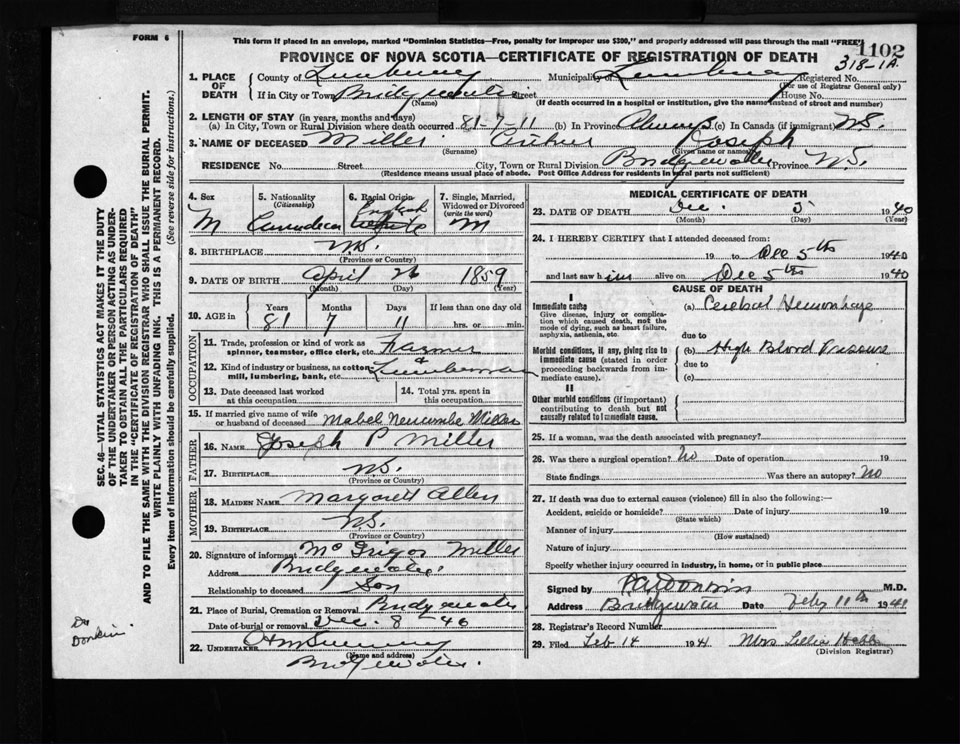 FORM 6
This form if placed in an envelope, marked "Dominion Statistics—Free, penalty for improper use $300," and properly addressed will pass through the mail "FREE"
1102
PROVINCE OF NOVA SCOTIA—CERTIFICATE OF REGISTRATION OF DEATH
318-1A
1. PLACE OF DEATH
County of Lunenburg Municipality of Lunenburg Registered No.
(For use of Registrar General only)
If in City or Town Bridgewater Street House No.
(Name) (If death occurred in a hospital or institution, give the name instead of street and number)
2. LENGTH OF STAY (in years, months and days)
(a) In City, Town or Rural Division where death occurred 81-7-11 (b) In Province Always (c) In Canada (if immigrant) N.S.
3. NAME OF DECEASED Miller Arthur Joseph
(Surname) (Given name or names)
RESIDENCE No. Street City, Town or Rural Division Bridgewater Province N.S.
(Residence means usual place of abode. Post Office Address for residents in rural parts not sufficient)
4. Sex M
5. Nationality (Citizenship) Canadian
6. Racial Origin English White
7. Single, Married, Widowed or Divorced (write the word) M
8. BIRTHPLACE N.S.
(Province or Country)
9. DATE OF BIRTH April 26 1859
(Month) (Day) (Year)
10. AGE in
Years Months Days If less than one day old
81 7 11 hrs. or min.
OCCUPATION
11. Trade, profession or kind of work as spinner, teamster, office clerk, etc. Farmer
12. Kind of industry or business, as cotton mill, lumbering, bank, etc. + Lumberman
13. Date deceased last worked at this occupation
14. Total yrs. spent in this occupation
15. If married give name of wife or husband of deceased Mabel Newcombe Miller
FATHER
16. NAME Joseph P Miller
17. BIRTHPLACE N.S.
(Province or Country)
MOTHER
18. MAIDEN NAME Margarett Allen
19. BIRTHPLACE N.S.
(Province or Country)
20. Signature of informant McGrigor Miller
Address Bridgewater
Relationship to deceased Son
21. Place of Burial, Cremation or Removal Bridgewater
Date of burial or removal Dec. 8 - 40
22. UNDERTAKER
(Name and address)
Bridgewater.
MEDICAL CERTIFICATE OF DEATH
23. DATE OF DEATH Dec. 5 1940
(Month) (Day) (Year)
24. I HEREBY CERTIFY that I attended deceased from:
19 to Dec 5th 1940
and last saw him alive on Dec 5th 1940
CAUSE OF DEATH
I
Immediate cause
Give disease, injury or complication which caused death, not the mode of dying, such as heart failure, asphyxia, asthenia, etc.
(a) Cerebral Hemorrhage
due to
Morbid conditions, if any, giving rise to immediate cause (stated in order proceeding backwards from immediate cause).
(b) High Blood Pressure
due to
(c)
II
Other morbid conditions (if important) contributing to death but not causally related to immediate cause.
25. If a woman, was the death associated with pregnancy?
26. Was there a surgical operation? No Date of operation 19
State findings Was there an autopsy? No
27. If death was due to external causes (violence) fill in also the following:—
Accident, suicide or homicide? Date of injury 19
(State which)
Manner of injury
(How sustained)
Nature of injury
Specify whether injury occurred in industry, in home, or in public place
Signed by Donkin M.D.
Address Bridgewater Date Feby 11th 1941
28. Registrar's Record Number
29. Filed Feb 14 1941 Mrs Lillie Hebb
(Division Registrar)
SEC. 46—VITAL STATISTICS ACT MAKES IT THE DUTY
OF THE UNDERTAKER OR PERSON ACTING AS UNDERTAKER
TO OBTAIN ALL THE PARTICULARS REQUIRED
IN THE "CERTIFICATE OF REGISTRATION OF DEATH"
AND TO FILE THE SAME WITH THE DIVISION REGISTRAR WHO SHALL ISSUE THE BURIAL PERMIT.
WRITE PLAINLY WITH UNFADING INK. THIS IS A PERMANENT RECORD.
Every item of information should be carefully supplied. (See reverse side for instructions.)
Dr
Donkin